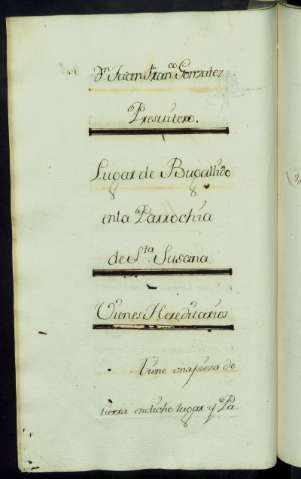 Dn. Juan Franco. Gonzalez
Presvitero.
Lugar de Bugallido
en la Parrochia
de Sta. Susana
Vienes Hereditarios
Tiene una pieza de
tierra en dicho lugar y Pa-